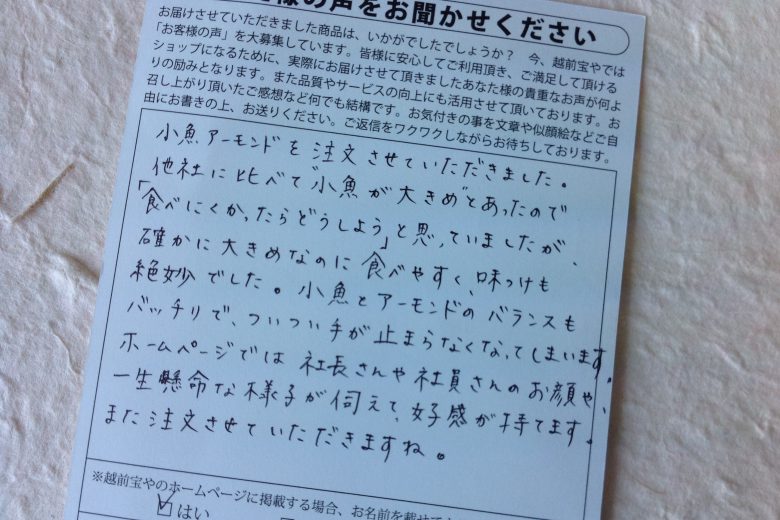 様の声をお聞かせください
お届けさせていただきました商品は、いかがでしたでしょうか？　今、越前宝やでは
「お客様の声」を大募集しています。皆様に安心してご利用頂き、ご満足して頂ける
ショップになるために、実際にお届けさせて頂きましたあなた様の貴重なお声が何よ
りの励みとなります。また品質やサービスの向上にも活用させて頂いております。お
召し上がり頂いたご感想など何でも結構です。お気付きの事を文章や似顔絵などご自
由にお書きの上、お送りください。ご返信をワクワクしながらお待ちしております。
小魚アーモンドを注文させていただきました。
他社に比べて“小魚が大きめ”とあったので
「食べにくかったらどうしよう」と思っていましたが、
確かに大きめなのに食べやすく、味つけも
絶妙でした。小魚とアーモンドのバランスも
バッチリで、ついつい手が止まらなくなってしまいます。
ホームページでは社長さんや社員さんのお顔や、
一生懸命な様子が伺えて、好感が持てます。
また注文させていただきますね。
※越前宝やのホームページに掲載する場合、お名前を載せて
☑はい